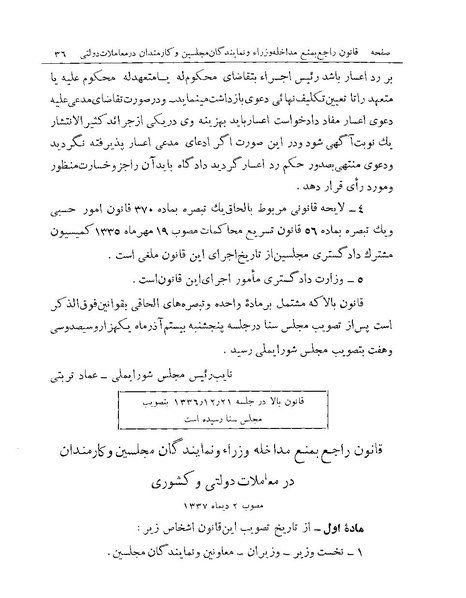 صفحه قانون راجع بمنع مداخله وزراء و نمایندگان مجلسین و کارمندان در معاملات دولتی ۳۶
بر رد اعسار باشد رئیس اجراء بتقاضای محکوم‌له یا متعهدله محکوم علیه یا
متعهد را تا تعیین تکلیف نهائی دعوی بازداشت مینماید ـ و در صورت تقاضای مدعی علیه
دعوی اعسار مفاد دادخواست اعسار باید بهزینه وی در یکی از جرائد کثیرالانتشار
یك نوبت آگهی شود و در این صورت اگر ادعای مدعی اعسار پذیرفته نگردید
و دعوی منتهی بصدور حکم رد اعسار گردید دادگاه باید آن را جزو خسارت منظور
و مورد رأی قرار دهد .
۴ ـ لایحه قانونی مربوط بالحاق یك تبصره بماده ۳۷۰ قانون امور حسبی
و یك تبصره بماده ۵۶ قانون تسریع محاکمات مصوب ۱۹ مهرماه ۱۳۳۵ کمیسیون
مشترك دادگستری مجلسین از تاریخ اجرای این قانون ملغی است .
۵ ـ وزارت دادگستری مأمور اجرای این قانون است .
قانون بالا که مشتمل بر مادۀ واحده و تبصره‌های الحاقی بقوانین فوق‌الذکر
است پس از تصویب مجلس سنا در جلسه پنجشنبه بیستم آذرماه یکهزار و سیصد و سی
و هفت بتصویب مجلس شورایملی رسید .
نایب رئیس مجلس شورایملی ـ عماد تربتی
قانون بالا در جلسه ۱۳۳۶/۱۲/۲۱ بتصویب
مجلس سنا رسیده است
قانون راجع بمنع مداخله وزراء و نمایندگان مجلسین و کارمندان
در معاملات دولتی و کشوری
مصوب ۲ دیماه ۱۳۳۷
مادۀ اول ـ از تاریخ تصویب این قانون اشخاص زیر :
۱ ـ نخست وزیر ـ وزیران ـ معاونین و نمایندگان مجلسین .